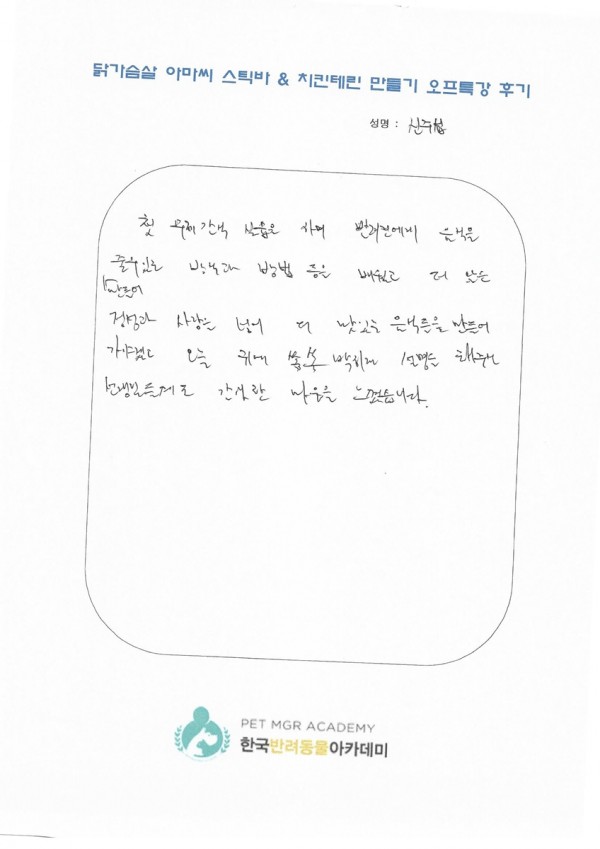 닭가슴살 아마씨 스틱바 & 치킨테린 만들기 오프특강 후기
성명 : 신주섭
첫 수제간식 실습을 하며 반려견에게 음식을
줄수있는 방식과 방법 등을 배웠고 더 많은
만들어
정성과 사랑을 넣어 더 맛있는 음식들을 만들어
가야겠고 오늘 귀에 쏙쏙 박히게 설명을 해주신
선생님들께도 감사한 마음을 느꼈습니다.
PET MGR ACADEMY
한국반려동물아카데미